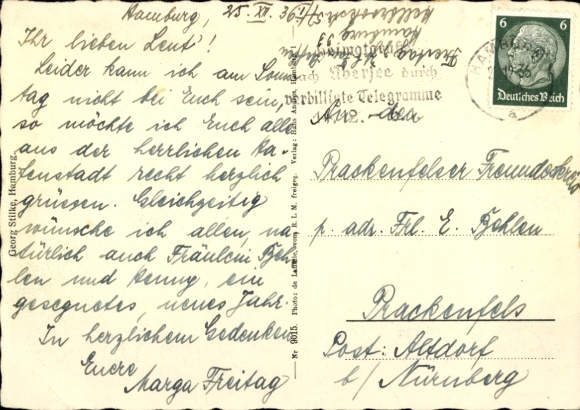 Hamburg, 25. XII. 36
Ihr lieben Leut'!
Leider kann ich am Sonn
tag nicht bei Euch sein,
so möchte ich Euch alle
aus der herrlichen Ha-
fenstadt recht herzlich
grüssen. Gleichzeitig
wünsche ich allen, na
türlich auch Fräulein
len und Henny, ein
gesegnetes, neues Jahr.
In herzlichem Gedenken
Eure
Marga Freitag
Georg Stilke, Hamburg.
Nr 9015.
Freitag
Hamburg
nach Übersee durch
verbilligte Telegramme
HAMBURG
a
6 6
Deutsches Reich
An den
Prackenfelser Freundeskreis
p. adr. Frl. E.
Prackenfels
Post: Altdorf
b/ Nürnberg